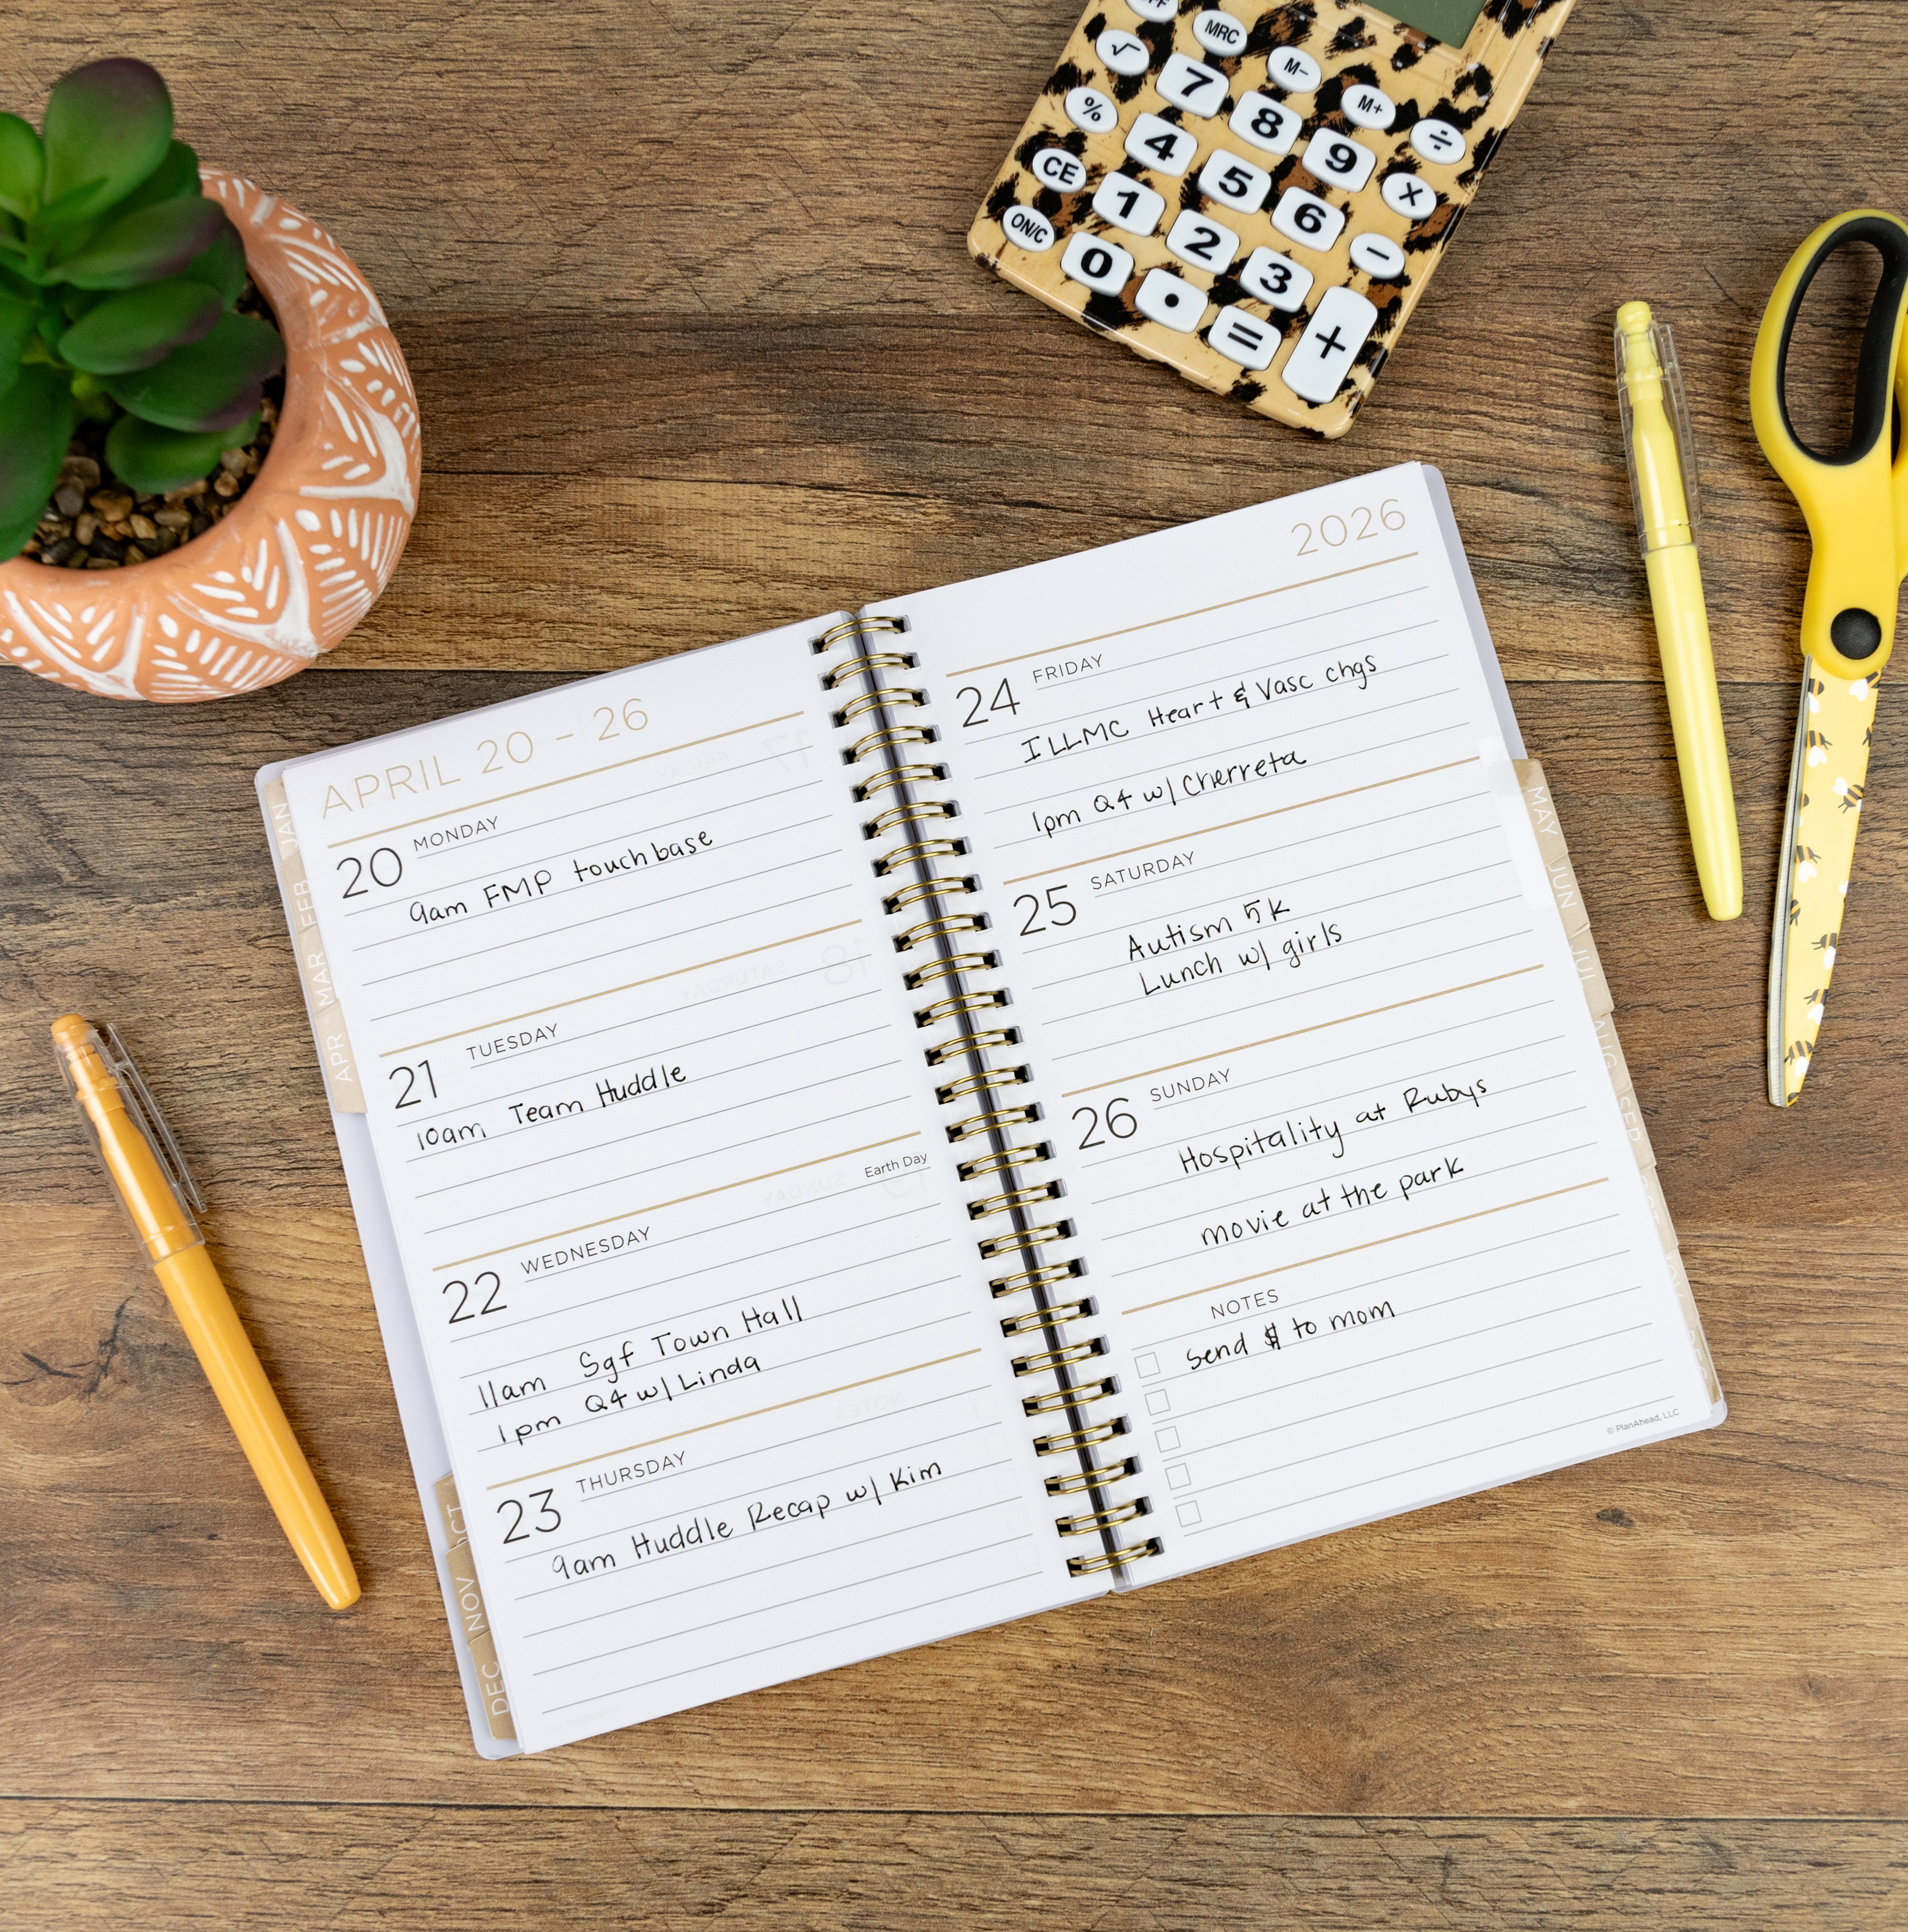 MRC
√
M-
7
M+
%
8
÷
4
9
CE
5
×
1
6
ON/C
2
-
0
3
.
=
+
2026
APRIL 20 - 26
MONDAY
20
9am FMP touchbase
TUESDAY
21
10am Team Huddle
Earth Day
WEDNESDAY
22
11am Sgf Town Hall
1pm Q4 w/ Linda
THURSDAY
23
9am Huddle Recap w/ Kim
FRIDAY
24
ILLMC Heart & Vasc chgs
1pm Q4 w/ Cherreta
SATURDAY
25
Autism 5k
Lunch w/ girls
SUNDAY
26
Hospitality at Rubys
movie at the park
NOTES
Send $ to mom
© PlanAhead, LLC
JAN
FEB
MAR
APR
NOV
DEC
MAY
JUN
JUL
AUG
SEP